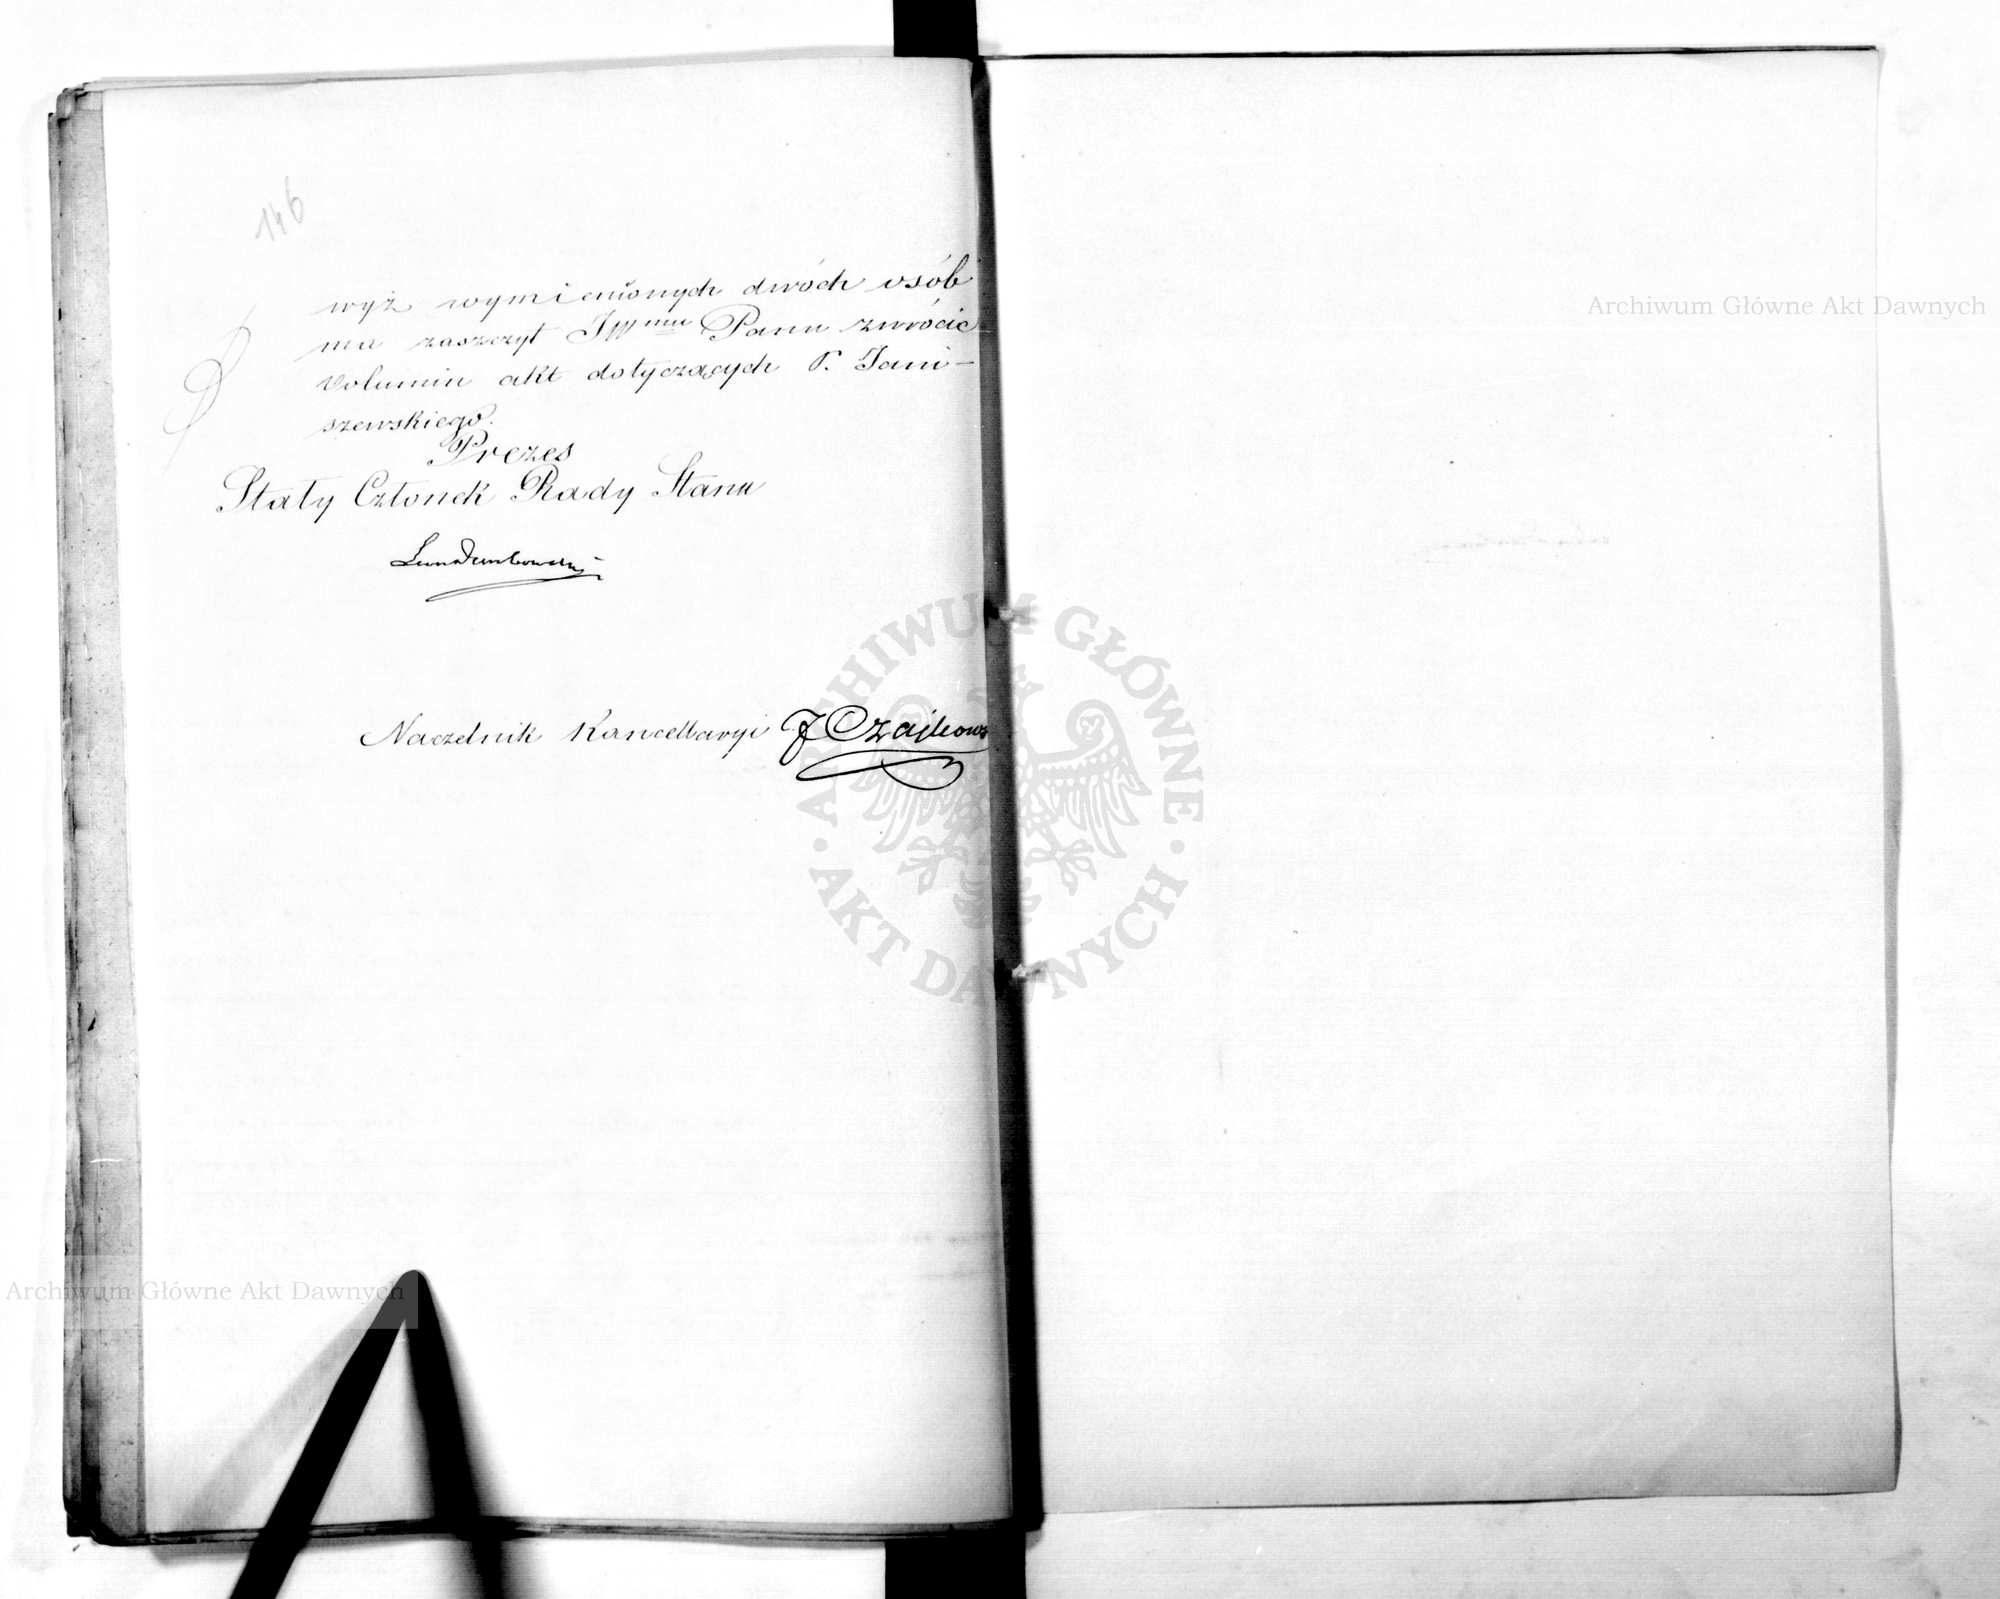 146
wyż wymienionych dwóch osób
ma zaszczyt JWmu Panu zwrócić
volumin akt dotyczących P. Jani-
szewskiego.
Prezes
Stały Członek Rady Stanu
Naczelnik Kancellaryi J Czajkows
Archiwum Główne Akt Dawnych
ARCHIWUM GŁÓWNE
· AKT DAWNYCH ·
Archiwum Główne Akt Dawnych